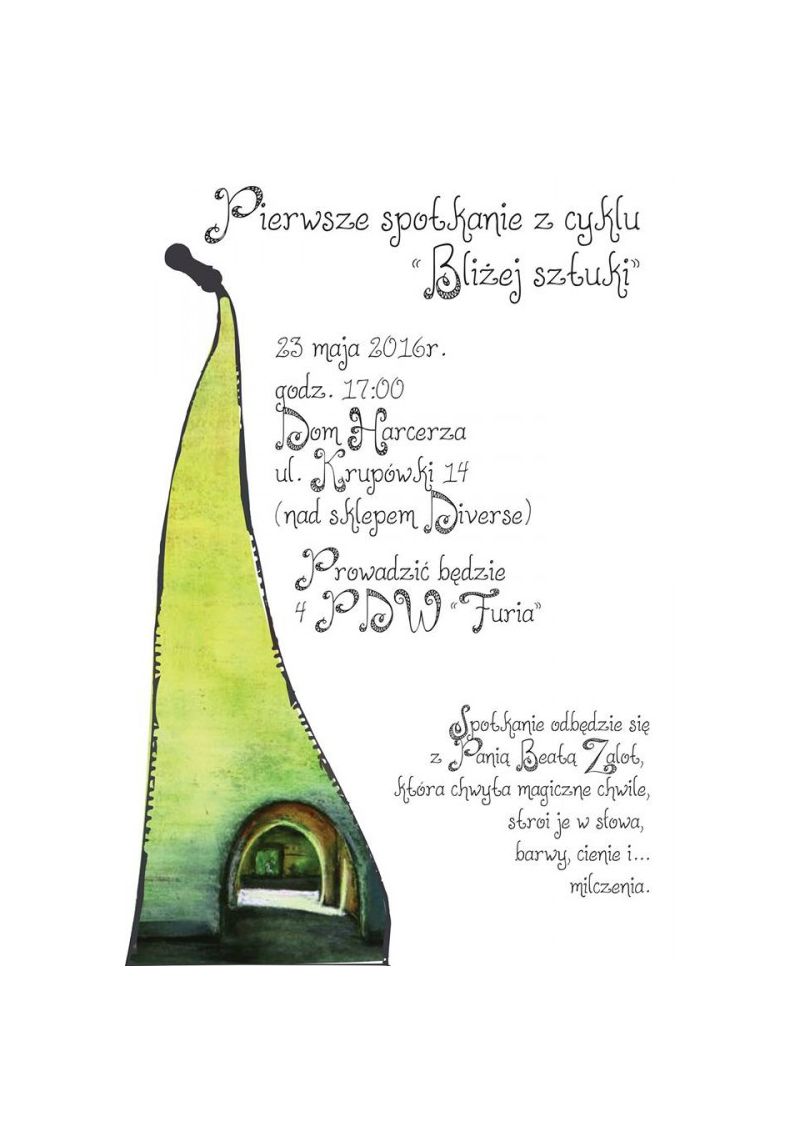 Pierwsze spotkanie z cyklu
“Bliżej sztuki”
23 maja 2016r.
godz. 17:00
Dom Harcerza
ul. Krupówki 14
(nad sklepem Diverse)
Prowadzić będzie
4 PDW “Furia”
Spotkanie odbędzie się
z Panią Beatą Zalot,
która chwyta magiczne chwile,
stroi je w słowa,
barwy, cienie i...
milczenia.